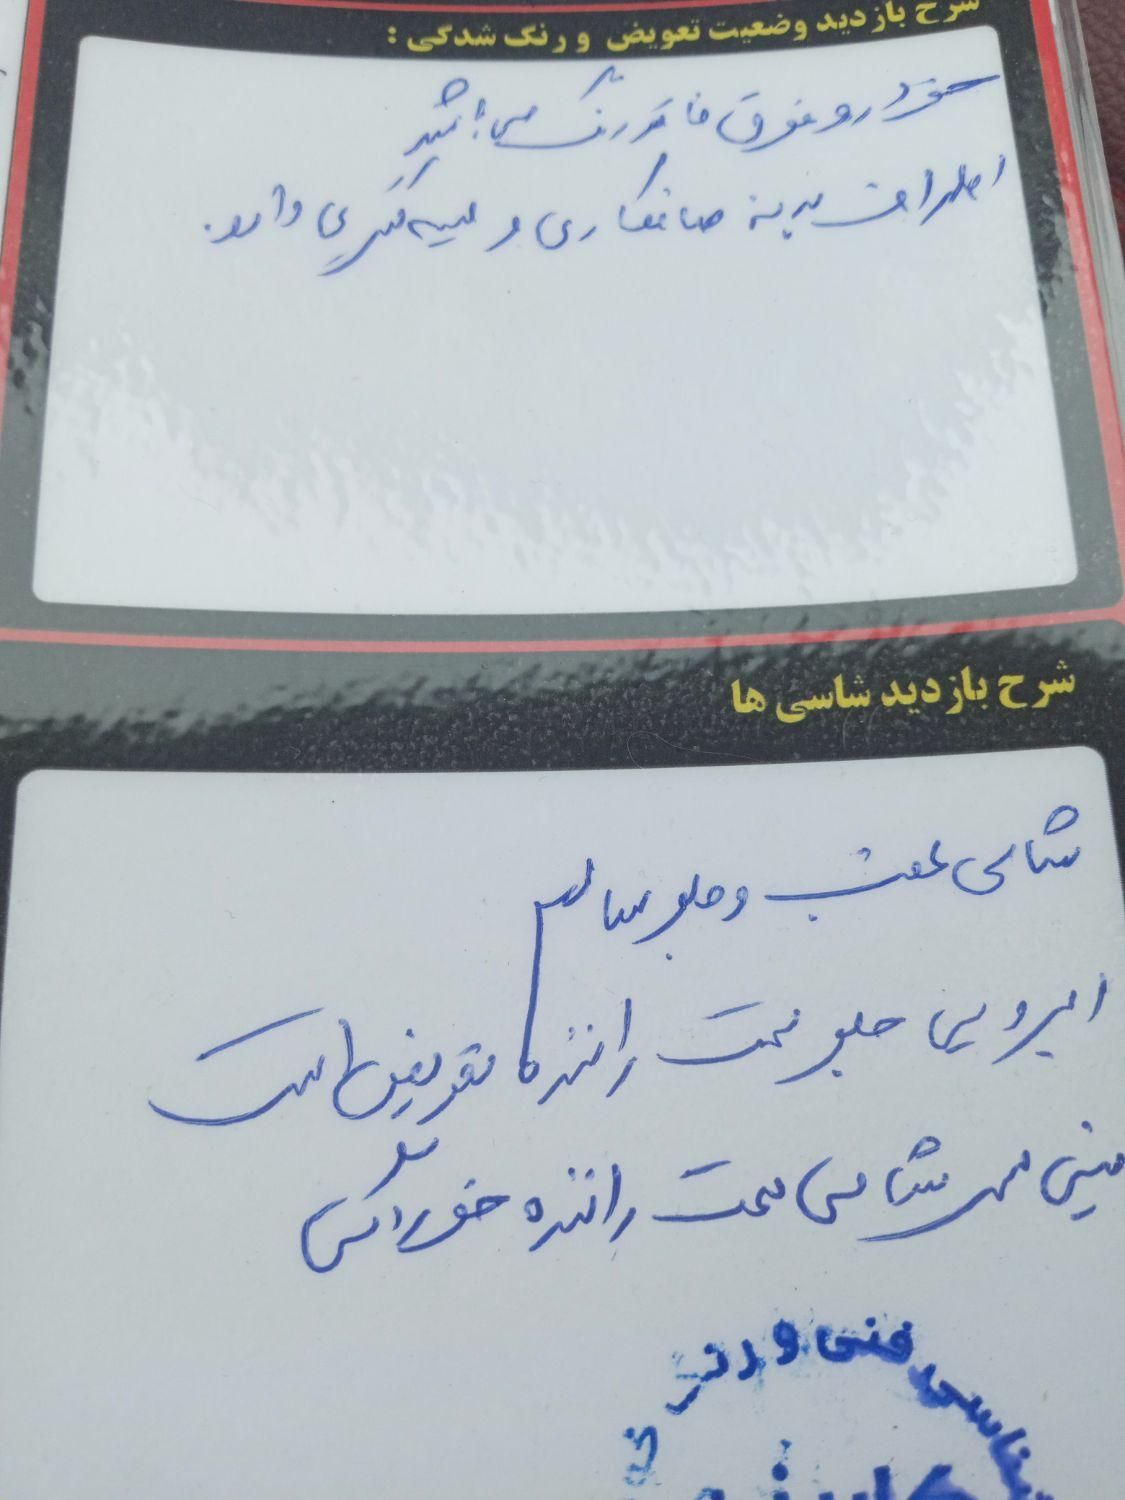 شرح بازدید وضعیت تعویض و رنگ شدگی :
خودرو فوق فاقد رنگ می باشد
اطراف بدنه صافکاری و لیسه گیری دارد.
شرح بازدید شاسی ها
شاسی عقب و جلو سالم
ابرویی جلو سمت راننده تعویض است
سینی سر شاسی سمت راننده خوردگی
فنی و رنگ